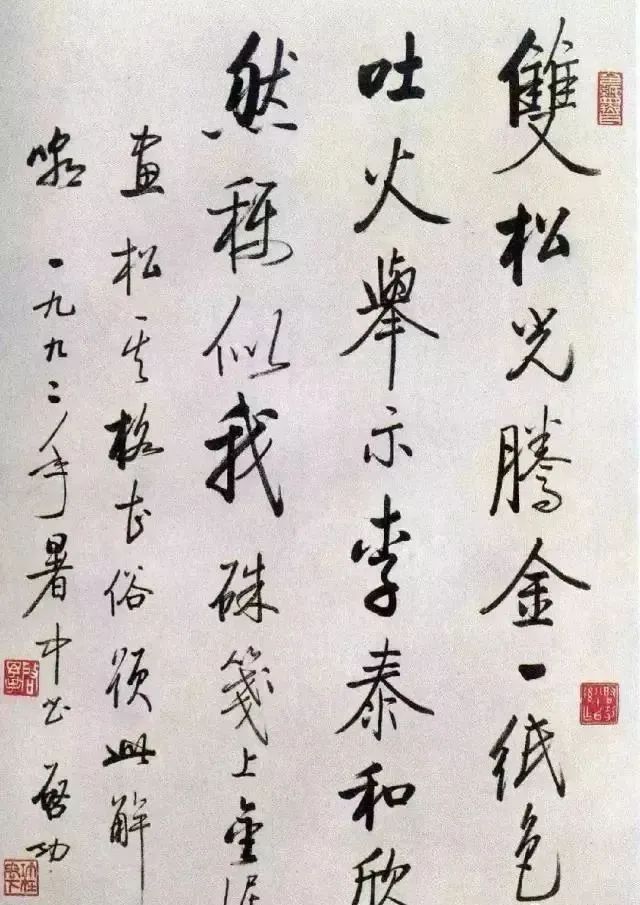 雙松光騰金一紙色
吐火舉示李泰和欣
然稱似我 硃箋上金泥
畫松其格甚俗此解
嘲 一九九二年暑中書 啓功